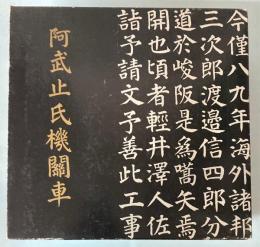 今僅八九年海外諸邦
三次郎渡邉信四郎分
道於峻阪是爲嚆矢焉
開也頃者輕井澤人佐
詣予請文予善此工事
阿武止氏機關車